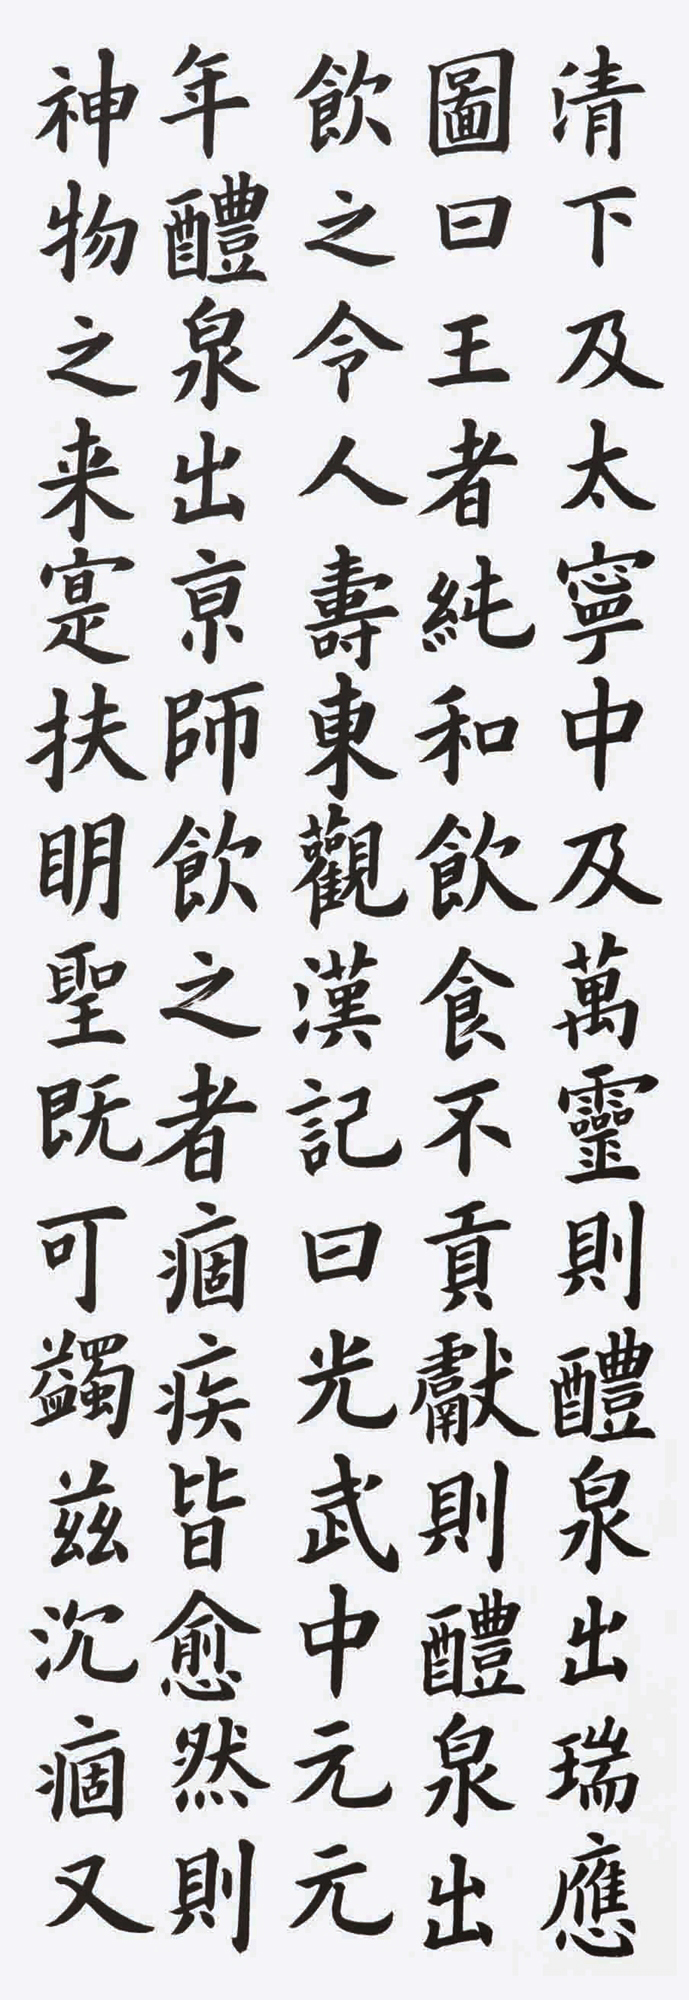 清下及太寧中及萬靈則醴泉出瑞應
圖曰王者純和飲食不貢獻則醴泉出
飲之令人壽東觀漢記曰光武中元元
年醴泉出京師飲之者痼疾皆愈然則
神物之来寔扶明聖既可蠲兹沉痼又